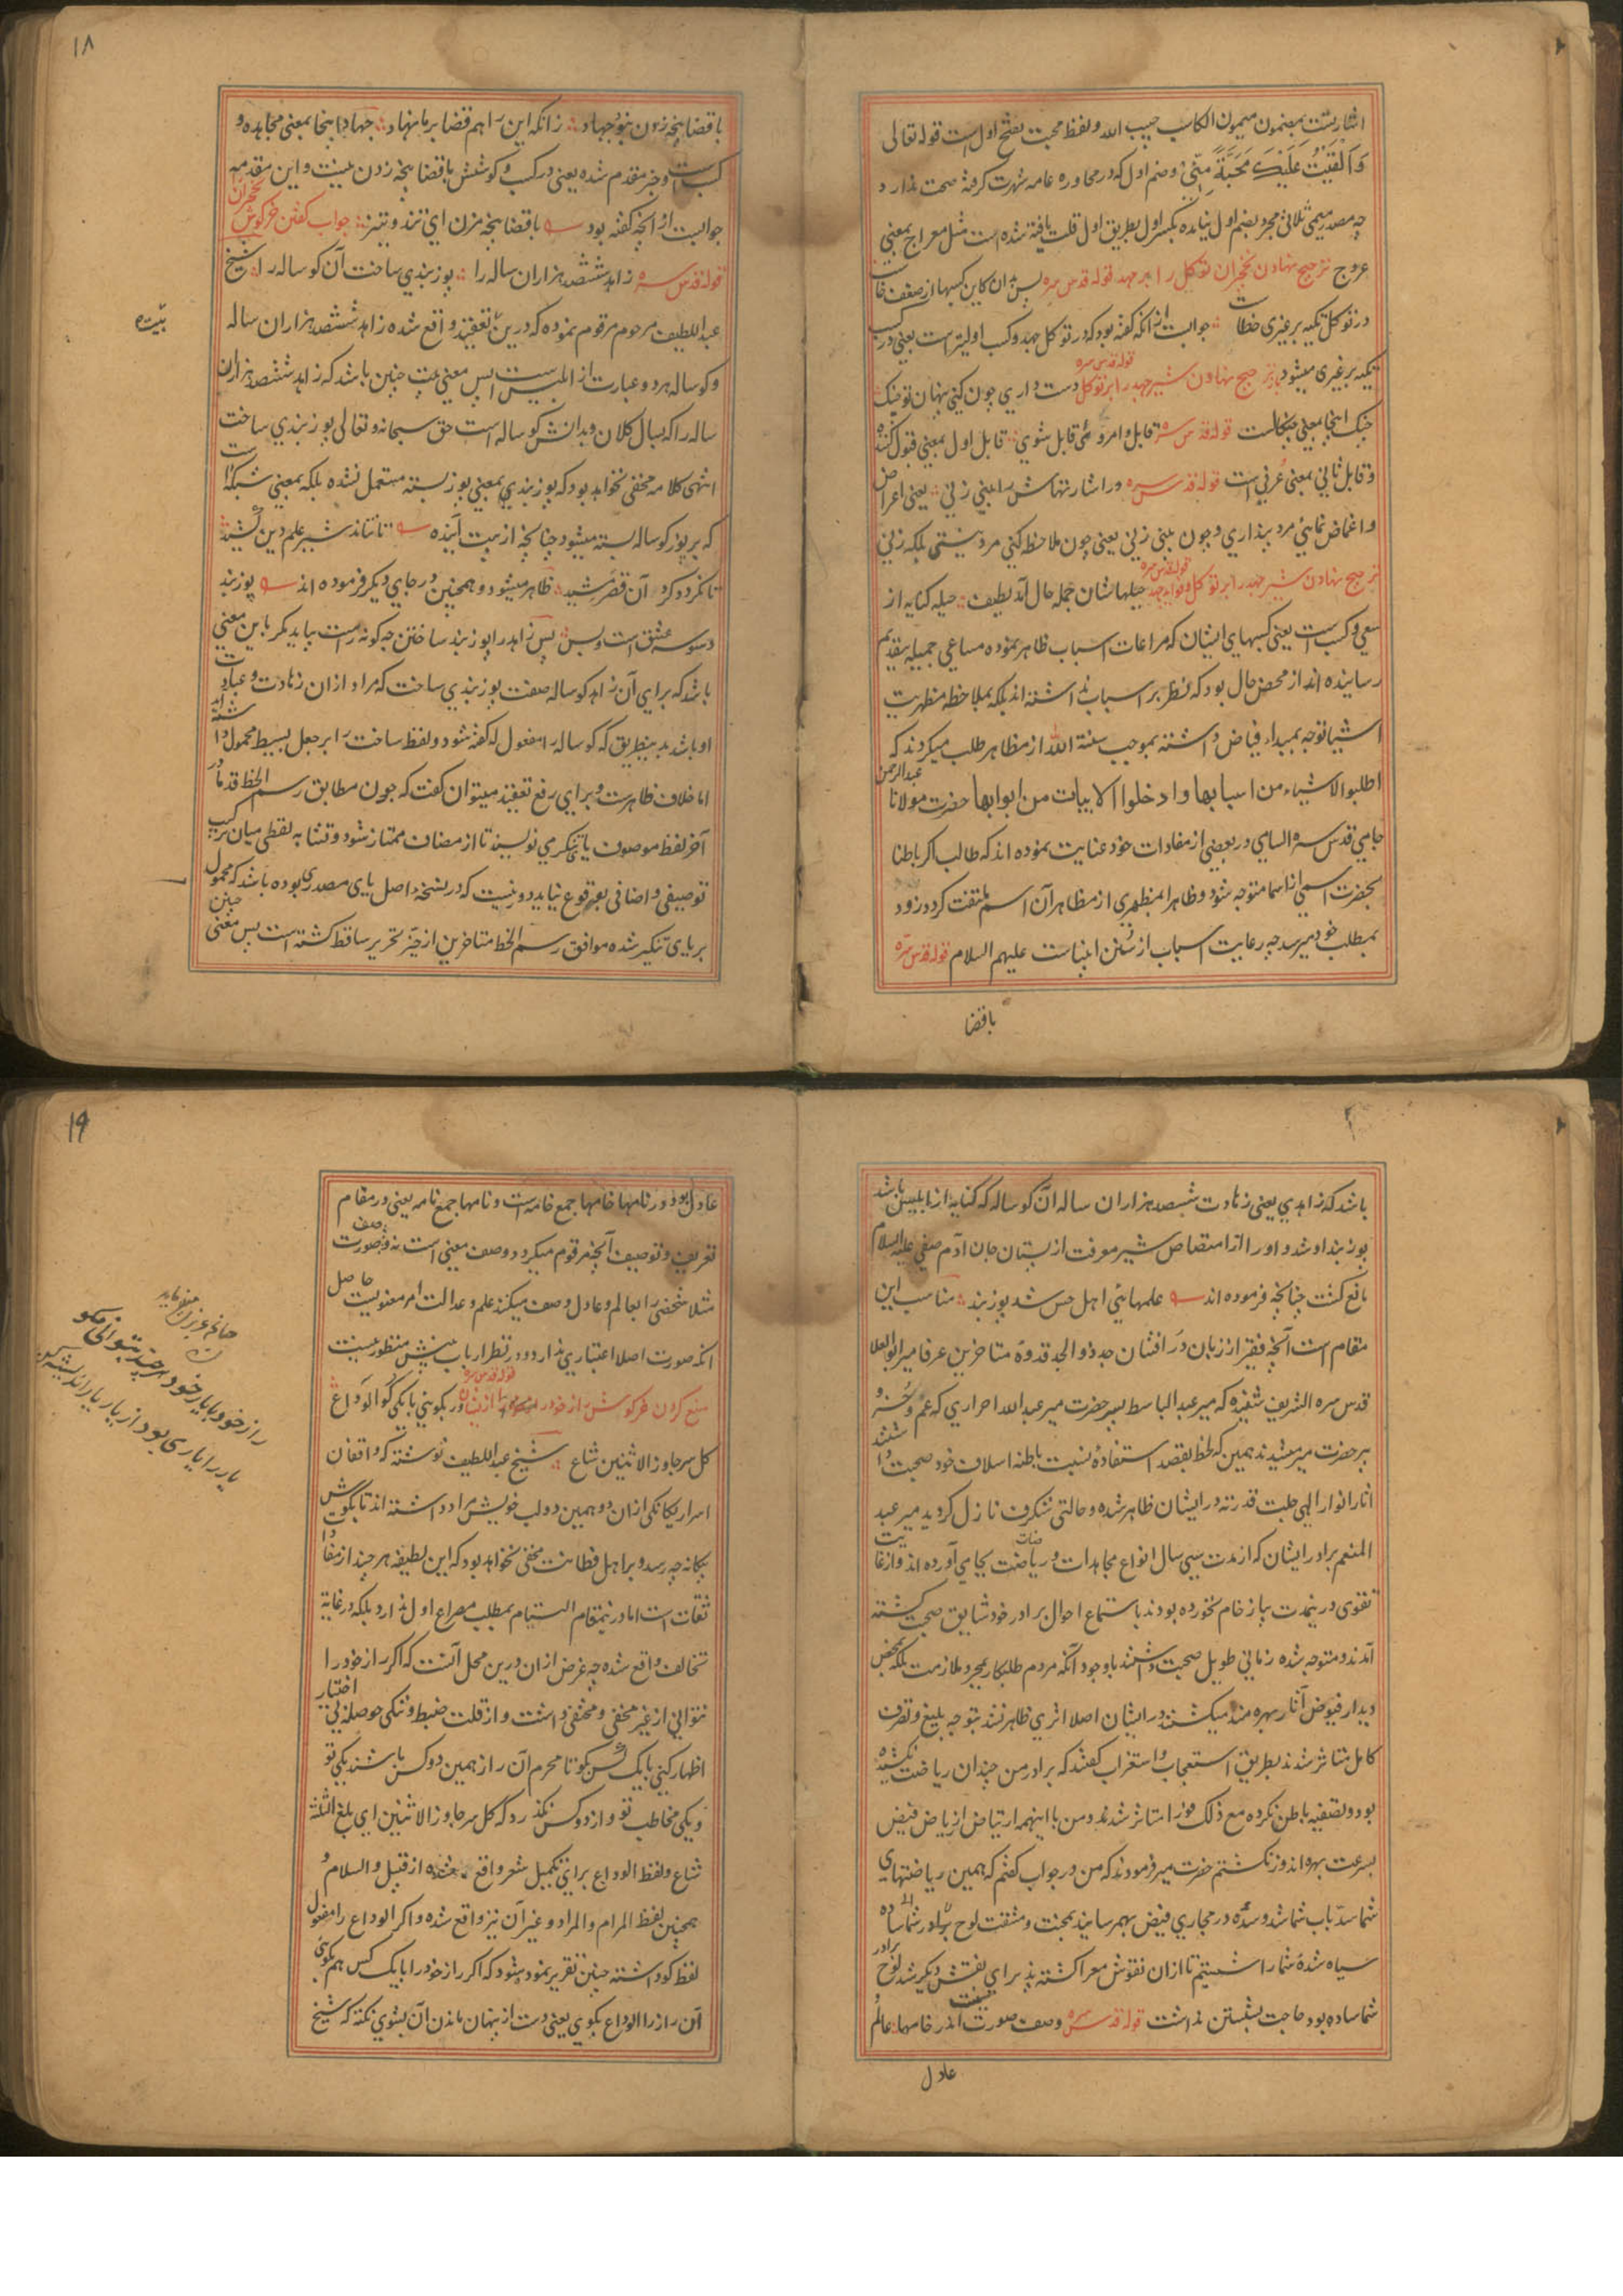 اشارتست بمضمون میمون الکاسب حبیب الله و لفظ محبت بفتح اول است قوله تعالی
وَاَلْقَیْتُ عَلَیْكَ مَحَبَّةً مِنّیْ و ضم اول که در محاوره عامه شهرت گرفته صحت ندارد
چه مصدر میمی ثلاثی مجرد بضم اول نیامده بکسر اول بطریق اول قلت یافته شده است مثل معراج بمعنی
عروج ترجیح نهادن نخچیران توکل را بر جهد قوله قدس سره پس بدان کاین کسبها از ضعف خاست
در توکل تکیه بر غیری خطاست جوابست از انکه گفته بود که در توکل جهد و کسب اولیترست یعنی در کسب
تکیه بر غیری میشود باز ترجیح نهادن شیر جهد را بر توکل قوله قدس سره دست داری چون کنی پنهان تو چنگ
چنگ اینجا بمعنی چنگالست قوله قدس سره قابل امر وئی قابل شوی قابل اول بمعنی قبول کننده
و قابل ثانی بمعنی عرفی است قوله قدس سره ور اشارتهاش را بینی زنی یعنی اعراض
و اغماض نمائی مرد پنداری و چون بینی زنی یعنی چون ملاحظه کنی مرد نیستی بلکه زنی
ترجیح نهادن شیر جهد را بر توکل و فواید جهد قوله قدس سره حیلهاشان جمله حال آمد لطیف حیله کنایه از
سعی و کسب است یعنی کسبهای ایشان که مراعات اسباب ظاهر نموده مساعی جمیله بتقدیم
رسانیده اند از محض حال بود که نظر بر اسباب نداشته اند بلکه بملاحظه مظهریت
اشیا توجه بمبداء فیاض داشته بموجب سنة الله از مظاهر طلب میکردند که
اطلبوا الاشیاء من اسبابها و ادخلوا الابیات من ابوابها حضرت مولانا عبدالرحمن
جامی قدس سره السامی در بعضی از مفادات خود عنایت نموده اند که طالب اگر باطنا
بحضرت اسمی از اسما متوجه شود و ظاهرا بمظهری از مظاهر آن اسم ملتفت گردد زود
بمطلب خود میرسد چه رعایت اسباب از سنن انبیاست علیهم السلام قوله قدس سره
باقضا
۱۸
با قضا پنجه زدن نبود جهاد زانکه این را هم قضا بر ما نهاد جهاد اینجا بمعنی مجاهده و
کسب است و خبر مقدم شده یعنی در کسب و کوشش با قضا پنجه زدن نیست و این مقدمه
جوابست از انچه گفته بود با قضا پنجه مزن ای تند و تیز جواب گفتن خرگوش نخچیران
قوله قدس سره زاهد ششصد هزاران ساله را پوزبندی ساخت آن گوساله را شیخ
عبداللطیف مرحوم مرقوم نموده که درین بیت تعقید واقع شده زاهد ششصد هزاران ساله
و گوساله هر دو عبارت از ابلیس است پس معنی بیت چنین باشد که زاهد ششصد هزاران
ساله را که بسال کلان و بدانش گوساله است حق سبحانه و تعالی پوزبندی ساخت
انتهی کلامه مخفی نخواهد بود که پوزبندی بمعنی پوز بسته مستعمل نشده بلکه بمعنی شبکه است
که بر پوز گوساله بسته میشود چنانچه از بیت آینده تا نتاند شیر علم دین کشید
تا نگردد گرد آن قصر مشید ظاهر میشود و همچنین در جای دیگر فرموده اند پوزبند
وسوسه عشق است و بس پس زاهد را پوزبند ساختن چگونه راست بیاید مگر باین معنی
باشد که برای آن زاهد گوساله صفت پوزبندی ساخت که مراد ازان زهادت و عبادت
او باشد بدینطریق که گوساله را مفعول له گفته شود و لفظ ساخت را بر جعل بسیط محمول داشته اند
اما خلاف ظاهرست و برای رفع تعقید میتوان گفت که چون مطابق رسم الخط قدما در
آخر لفظ موصوف یای تنکیری نویسند تا از مضاف ممتاز شود و تشابه لفظی میان ترکیب
توصیفی و اضافی بوقوع نیاید دور نیست که در نسخه اصل یای مصدری بوده باشد که محمول
بر یای تنکیر شده موافق رسم الخط متاخرین از حیز تحریر ساقط گشته است پس معنی چنین
باشد که زاهدی یعنی زهادت ششصد هزاران ساله آن گوساله که کنایه از ابلیس باشد
پوزبند او شد و او را از امتصاص شیر معرفت از پستان جان آدم صفی علیه السلام
مانع گشت چنانچه فرموده اند علمهائی اهل حس شد پوزبند مناسب این
مقام است آنچه فقیر از زبان در افشان جد ذو المجد قدوه متاخرین عرفا میر ابوالعلا
قدس سره الشریف شنیده که میر عبدالباسط پسر حضرت میر عبدالله احراری که عم و خسر
پر حضرت میر میشدند همین که لحظه بقصد استفادۀ نسبت باطنه اسلاف خود صحبت داشتند
اثار انوار الهی جلت قدرته در ایشان ظاهر شده و حالتی شگرف نازل گردید میر عبد
المنعم برادر ایشان که از مدت سی سال انواع مجاهدات و ریاضت بجامی آورده اند و از غایت
تقوی درینمدت پیاز خام نخورده بودند باستماع احوال برادر خود شایق صحبت گشته
آمدند و متوجه شده زمانی طویل صحبت داشتند باوجود آنکه مردم طلبکار بمجرد ملازمت بلکه بمحض
دیدار فیوض آثار بهره مند میگشتند در ایشان اصلا اثری ظاهر نشد بتوجه بلیغ و تصرف
کامل متاثر شدند بطریق استعجاب و استغراب گفتند که برادر من چندان ریاضت نکشیده
بود و تصفیه باطن نکرده مع ذلک فورا متاثر شدند و من با اینهمه ارتیاض از ریاض فیض
بسرعت بهره اندوز نگشتم حضرت میر فرمودند که من در جواب گفتم که همین ریاضتهای
شما سد باب شما شد و سده در مجاری فیض بهم رسانید بمحنت و مشقت لوح ساده
سیاه شدۀ شما را شستیم تا ازان نقوش معرا گشته پذیرای نقش دیگر شد لوح برادر
شما ساده بود حاجت بشستن نداشت قوله قدس سره وصف صورت نیست اندر خامها عالم
عادل
۱۹
عادل بود در نامها خامها جمع خامه است و نامها جمع نامه یعنی در مقام
تعریف و توصیف آنچه مرقوم میگردد وصف معنی است نه وصف صورت
مثلا شخصی را بعالم و عادل وصف میکنند علم و عدالت امر معنویست حاصل
انکه صورت اصلا اعتباری ندارد و در نظر ارباب بینش منظور نیست
منع کردن خرگوش راز خود را از ایشان قوله قدس سره ور بگوئی با یکی گو الوداع
کل سر جاوز الاثنین شاع شیخ عبداللطیف نوشته که واقفان
اسرار یگانگی ازان دو همین دو لب خویش مراد داشته اند تا بگوش
بیگانه چه رسد و بر اهل فطانت مخفی نخواهد بود که این لطیفه هر چند از مفادات
ثقات است اما درینمقام التیام بمطلب مصراع اول ندارد بلکه در غایة
تخالف واقع شده چه غرض ازان درین محل آنست که اگر راز خود را
نتوانی از غیر مخفی و محتفی داشت و از قلت ضبط و تنگی حوصله بی اختیار
اظهار کنی با یک کس بگو تا محرم آن راز همین دو کس باشند یکی تو
و یکی مخاطب تو و از دو کس نگذرد که کل سر جاوز الاثنین ای بلغ الثلثة
شاع و لفظ الوداع برای تکمیل شعر واقع شده از قبیل والسلام و
همچنین لفظ المرام والمراد و غیر آن نیز واقع شده و اگر الوداع را مفعول
لفظ گو داشته چنین تقریر نموده شود که اگر راز خود را با یک کس هم بگوئی
آن راز را الوداع بگوی یعنی دست از پنهان ماندن آن بشوی نکته که شیخ
راز خود با یار خود هر چند بتوانی مگو
یار را یاری بود از یار یار اندیشه کن